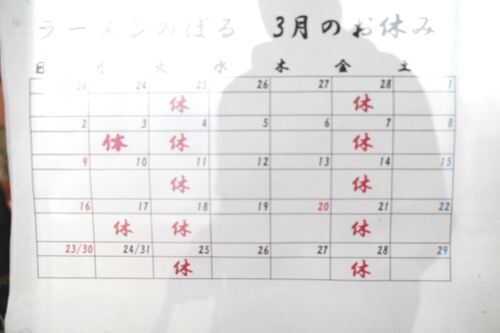 ラーメンのぼる 3月のお休み
日 月 火 水 木 金 土
26 24 25 26 27 28 1
休 休
2 3 4 5 6 7 8
休 休 休
9 10 11 12 13 14 15
休 休
16 17 18 19 20 21 22
休 休 休
23/30 24/31 25 26 27 28 29
休 休